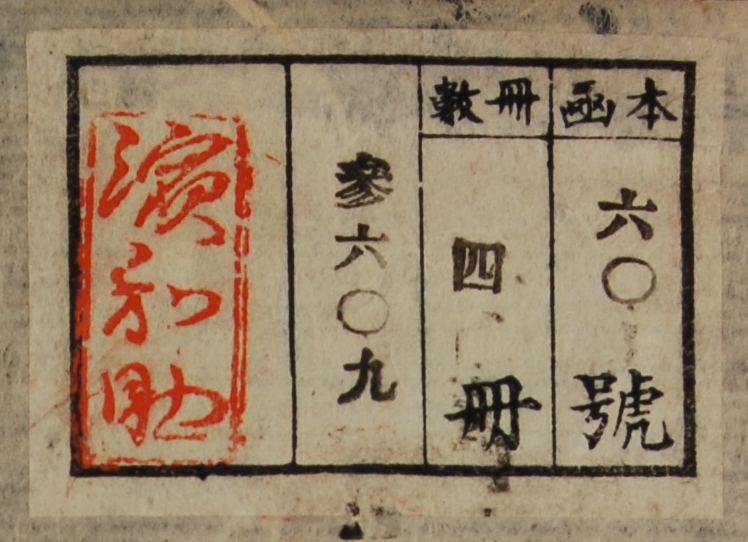 本函
六〇號
冊數
四冊
參六〇九
濱和助